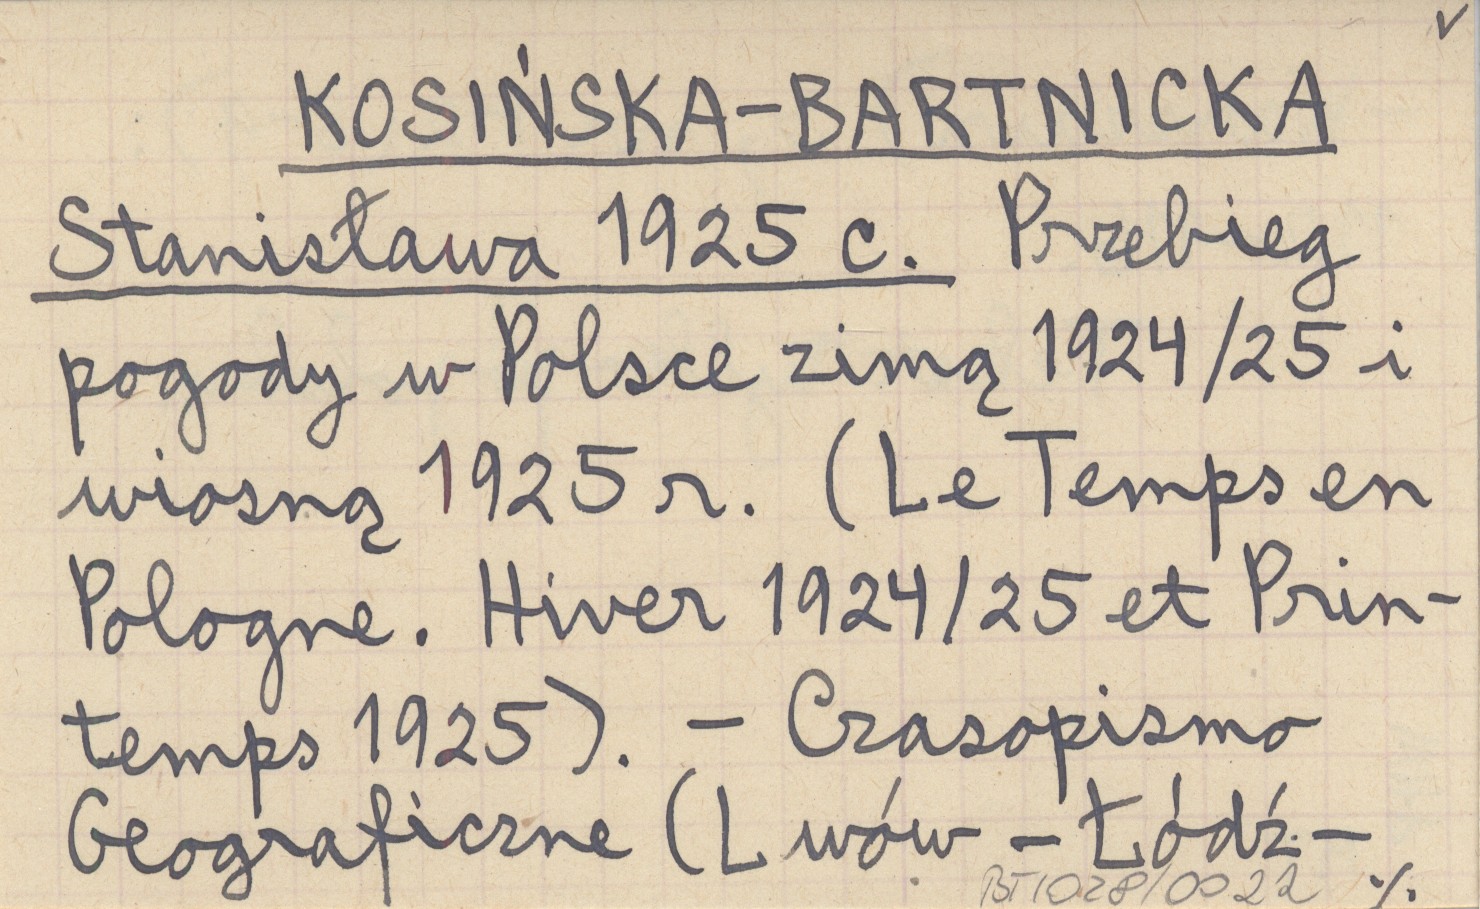 KOSIŃSKA-BARTNICKA
Stanisława 1925 c. Przebieg
pogody w Polsce zimą 1924/25 i
wiosną 1925 r. (Le Temps en
Pologne. Hiver 1924/25 et Prin-
temps 1925). - Czasopismo
Geograficzne (Lwów - Łódź -
BT1028/0022 ./.